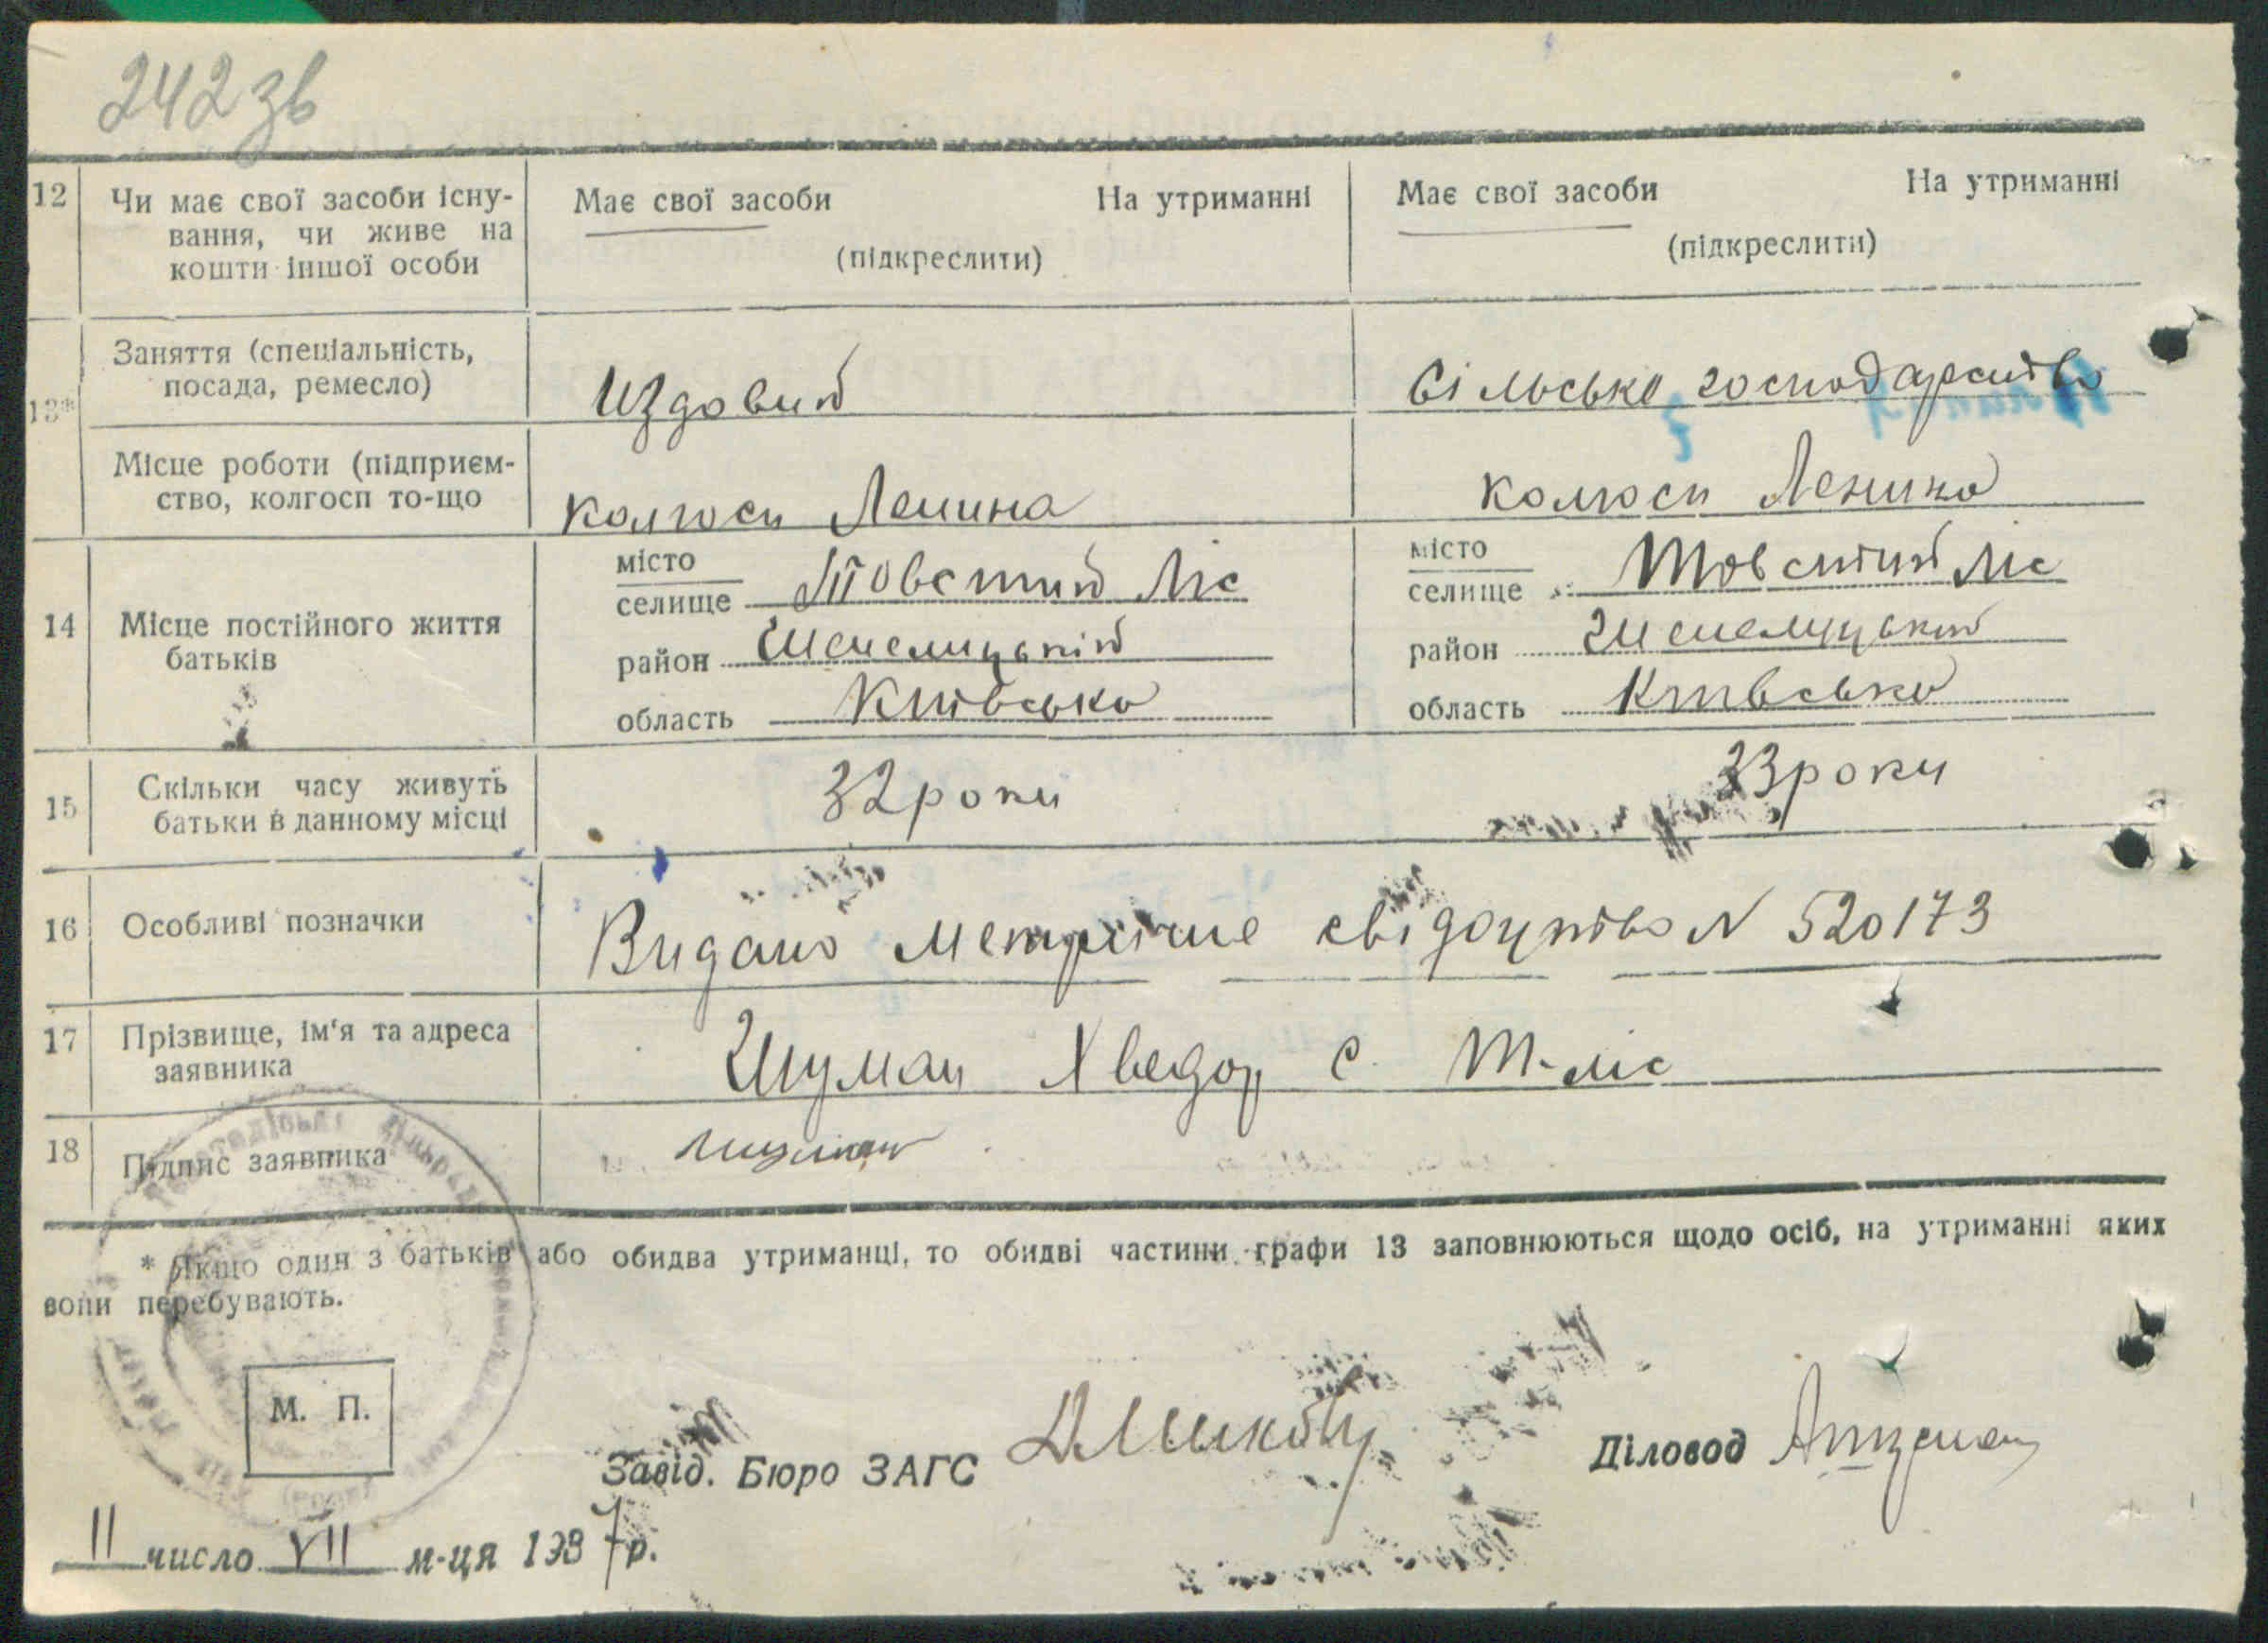 242 зв
12 Чи має свої засоби існу-
вання, чи живе на
кошти іншої особи
Має свої засоби На утриманні
(підкреслити)
Має свої засоби На утриманні
(підкреслити)
13*
Заняття (спеціальність,
посада, ремесло)
Їздовий
Сільсько господарство
Місце роботи (підприєм-
ство, колгосп то-що
колгосп Ленина
колгосп Ленина
14 Місце постійного життя
батьків
місто
селище Товстий Ліс
район Шепелицький
область Київська
місто
селище Товстий Ліс
район Шепелицький
область Київська
15 Скільки часу живуть
батьки в данному місці
32 роки
33 роки
16 Особливі позначки
Видано метричне свідоцтво N 520173
17 Прізвище, ім'я та адреса
заявника
Шуман Хведор с. Т-ліс
18 Підпис заявника
* Якщо один з батьків або обидва утриманці, то обидві частини графи 13 заповнюються щодо осіб, на утриманні яких
вони перебувають.
М. П.
Завід. Бюро ЗАГС
Діловод
11 число VII м-ця 1937 р.